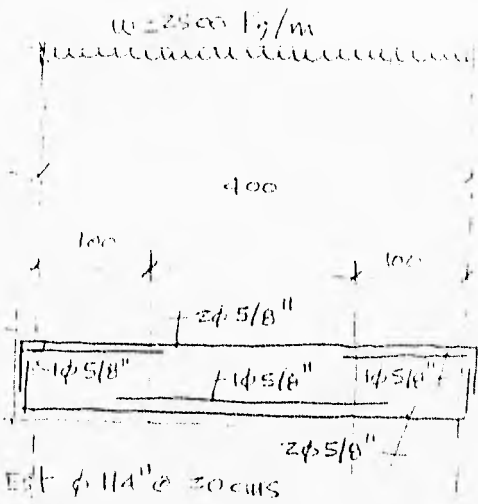 w = 2500 Kg/m
400
100 100
2ϕ 5/8"
1ϕ 5/8" 1ϕ 5/8" 1ϕ 5/8"
2ϕ 5/8"
Est ϕ 1/4" @ 20 cms